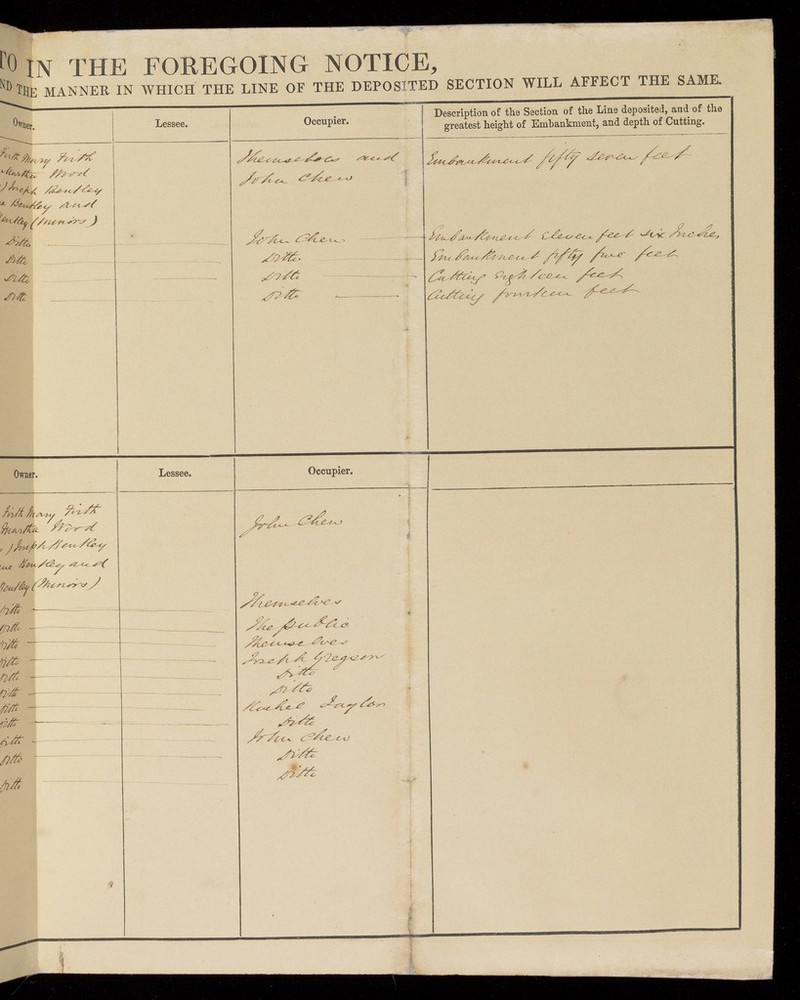 TO IN THE FOREGOING NOTICE,
ND THE MANNER IN WHICH THE LINE OF THE DEPOSITED SECTION WILL AFFECT THE SAME.
Owner. Lessee. Occupier. Description of the Section of the Line deposited, and of the
greatest height of Embankment, and depth of Cutting.
Firth Mary Firth Themselves and Embankment fifty seven feet
Martha Wood John Chew
) Joseph Bentley
Bentley and
Bentley (Minors)
Ditto John Chew Embankment Eleven feet six Inches
Ditto Ditto Embankment fifty five feet
Ditto Ditto Cutting Eighteen feet
Ditto Ditto Cutting fourteen feet
Owner. Lessee. Occupier.
Firth Mary Firth John Chew
Martha Wood
) Joseph Bentley
Bentley and
Bentley (Minors)
Ditto Themselves
Ditto The public
Ditto Themselves
Ditto Joseph Gregson
Ditto Ditto
Ditto Ditto
Ditto Rachel Taylor
Ditto Ditto
Ditto John Chew
Ditto Ditto
Ditto Ditto